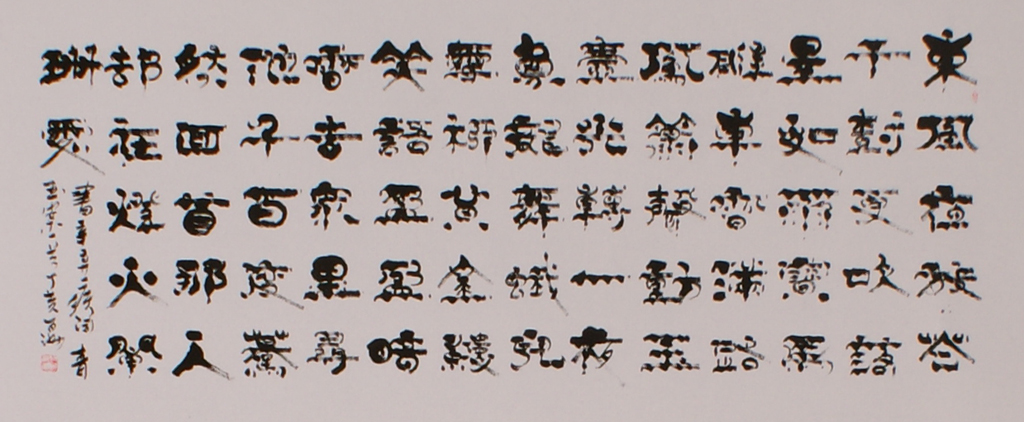 東風夜放花
千樹更吹落
星如雨寶馬
雕車香滿路
鳳簫聲動玉
壺光轉一夜
魚龍舞蛾兒
雪柳黃金縷
笑語盈盈暗
香去眾里尋
他千百度驀
然回首那人
却在燈火闌
珊處
書辛弃疾詞青
玉案丁亥